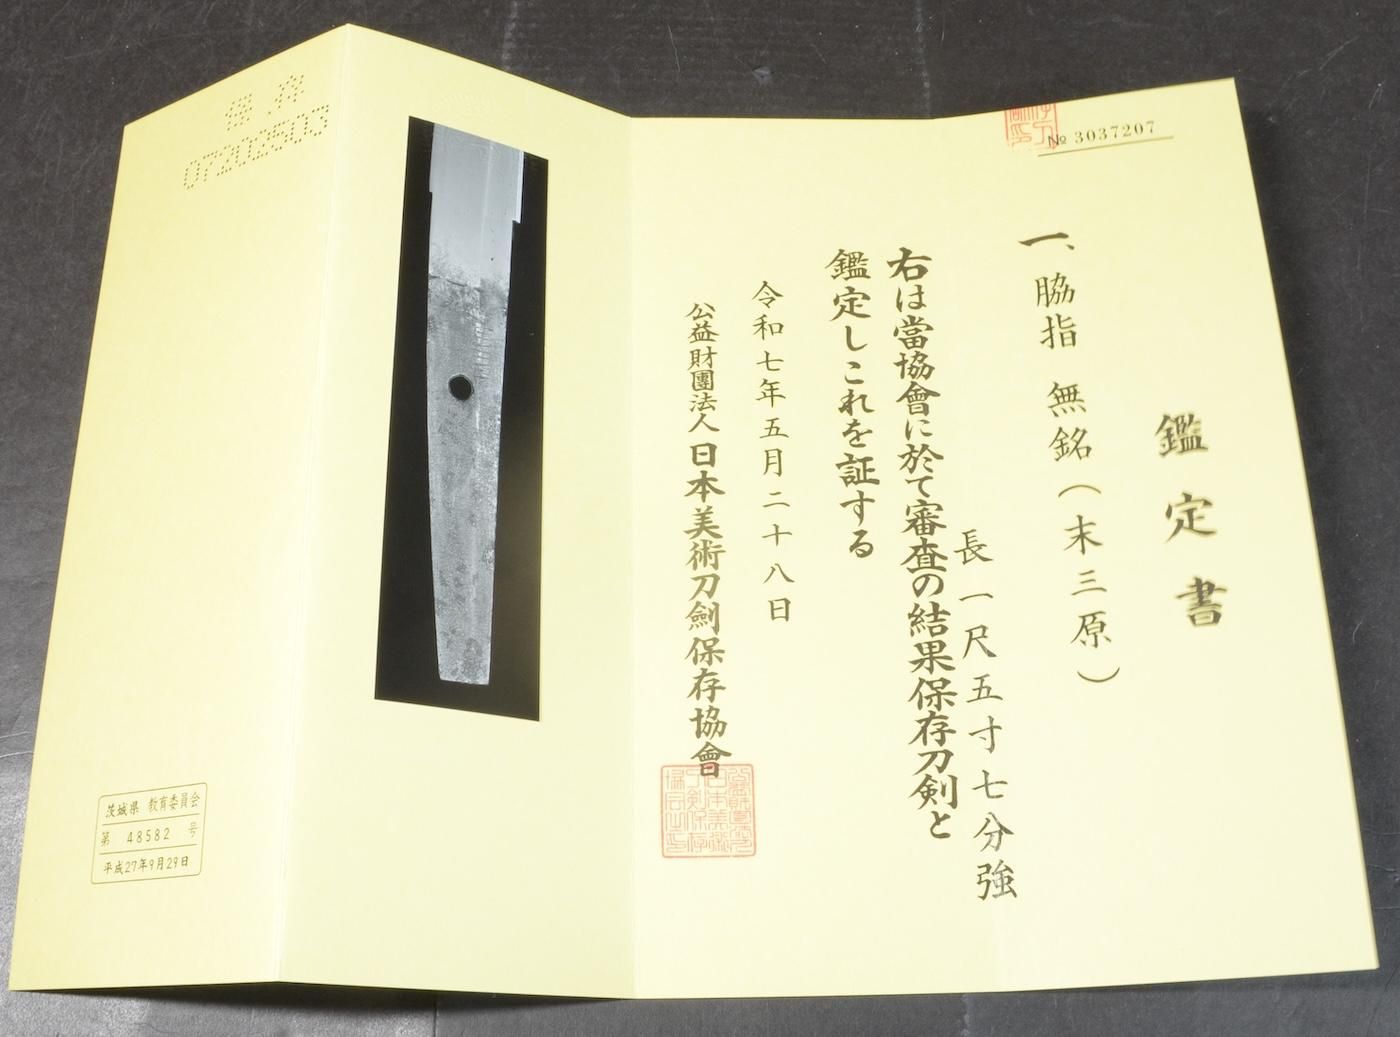 № 3037207
鑑定書
一、脇指 無銘(末三原)
長一尺五寸七八分強
右は當協會に於て審査の結果保存刀剣と
鑑定しこれを証する
令和七年五月二十八日
公益財團法人 日本美術刀劍保存協會
0720250３
茨城県 教育委員会
第 48582 号
平成27年9月29日